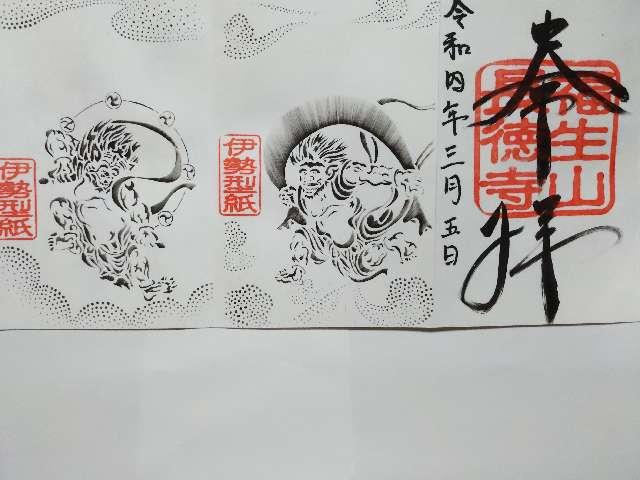 奉拝
福生山
長徳寺
令和四年三月五日
伊勢型紙
伊勢型紙